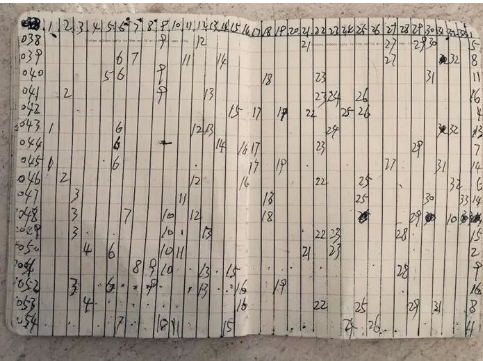 1 2 3 4 5 6 7 8 9 10 11 12 13 14 15 16 17 18 19 20 21 22 23 24 25 26 27 28 29 30 31 32 33
038 9 12 21 27 29 30 5
039 6 7 11 14 27 32 8
040 5 6 9 18 23 31 11
041 2 9 13 23 24 26 16
042 15 17 19 22 25 26 4
043 1 6 12 13 24 32 13
044 6 14 16 17 23 29 7
045 6 17 19 27 31 14
046 2 12 16 22 25 32 6
047 3 11 18 25 30 33 14
048 3 7 10 12 18 29
049 3 10 13 22 23 28 15
050 4 6 10 11 21 23 2
8 9 10 13 15 28 9
052 3 6 9 13 16 19 16
053 4 16 22 25 29 31 8
054 7 10 11 15 26 11